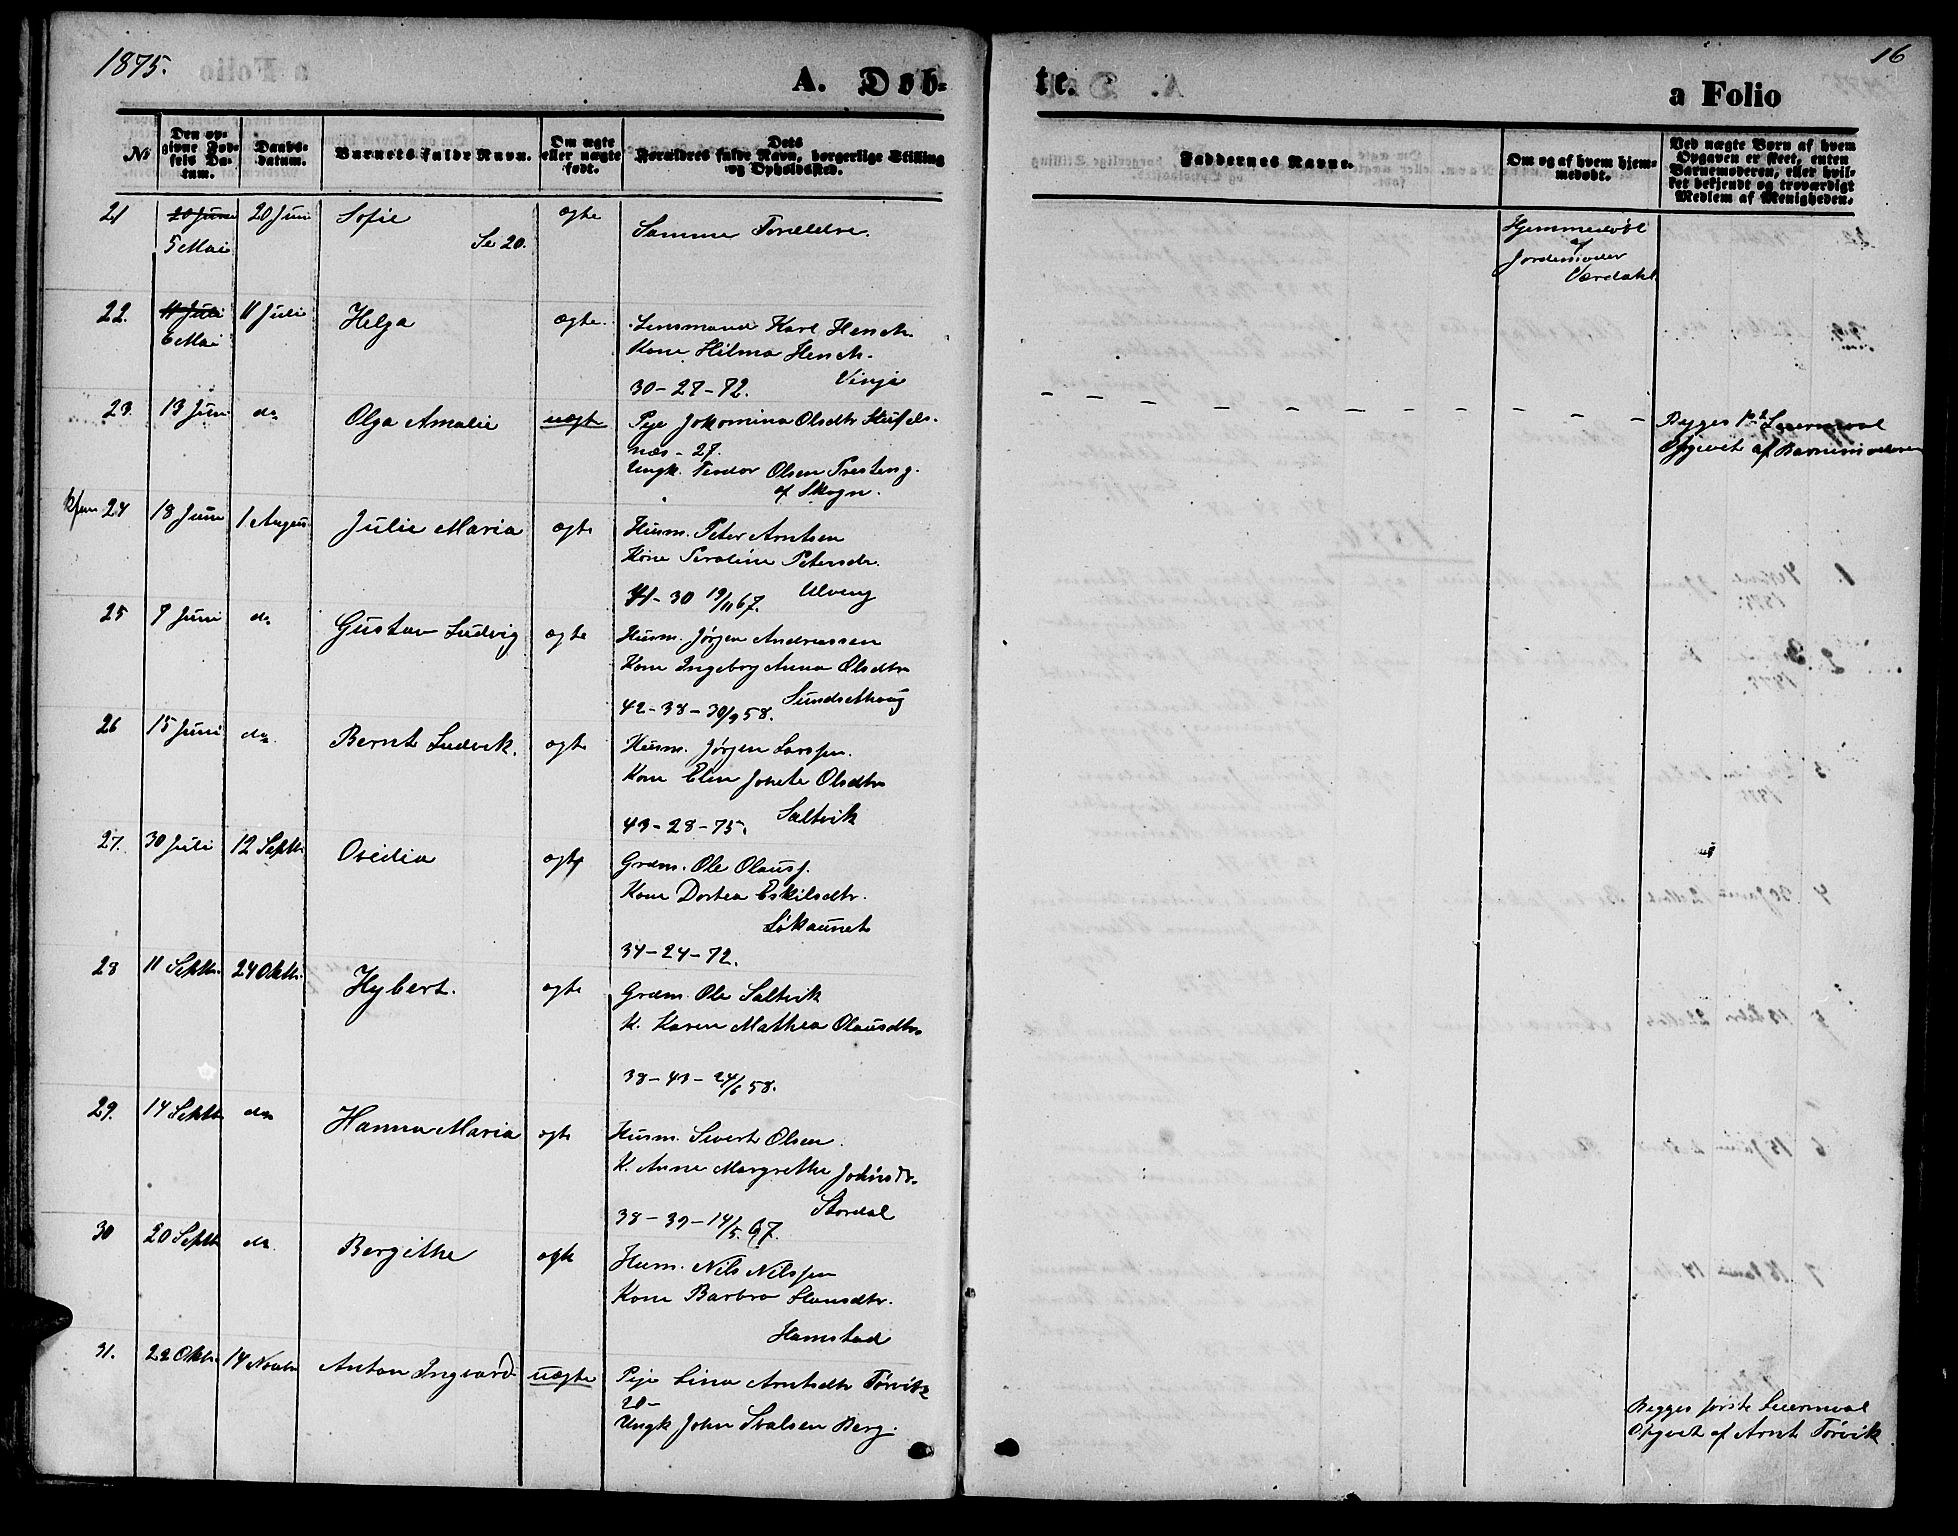 1875.
16
A. Døb-
te.
a Folio
No
Den op-
givne Fød-
sels Da-
tum.
Daabs-
datum.
Barnets fulde Navn.
Om ægte
eller uægte
født.
Dets
Forældres fulde Navn, borgerlige Stilling
og Opholdssted.
Faddernes Navne.
Om og af hvem hjem-
medøbt.
Ved uægte Børn af hvem
Opgaven er skeet, enten
Barnemoderen, eller hvil-
ket bekjendt og troværdigt
Medlem af Menigheden.
21
20 Juni
5 Mai
20 Juni
Sofie
Se 20.
ægte
Samme Forældre.
Hjemmedøbt
af
Jordemoder
Værdahl
22.
11 Juli
6 Mai
11 Juli
Helga
ægte.
Lensmand Karl Hench.
Kone Hilma Hench.
Vinje
30-27-72.
23.
13 Juni
do
Olga Amalie
uægte
Pige Jokomina Olsdtr
næs - 27.
Ungk. Teodor Olsen
af Skogn.
Begges 1ste Leiermaal
Opgivet af Barnemoderen
24
18 Juni
1 August
Julie Maria
ægte
Husm. Peter Arntsen
Kone Peroline Petersdr.
Ulveng
41-30 19/11 67.
25
9 Juni
do
Gustav Ludvig
ægte
Husm. Jørgen Andreassen
Kone Ingeborg Anna Olsdtr
Sundsethaug
42-38-30/9 58.
26
15 Juni
do.
Bernt Ludvik.
ægte
Husm. Jørgen Larssen.
Kone Elen Jonete Olsdtr
Saltvik
43-28-75.
27.
30 Juli
12 Septbr.
Ovedia
ægte
Grdm. Ole Olauss.
Kone Dortea Eskilsdtr.
Løkaunet
34-24-72.
28
11 Septbr.
24 Oktbr.
Hybert.
ægte
Grdm. Ole Saltvik
K. Karen Mathea Olausdtr
38-43-24/6 58.
29.
14 Septbr
do
Hanna Maria
ægte
Husm. Sivert Olsen.
K. Anne Margrethe Johnsdr.
Stordal
38-39-14/5. 67.
30
20 Septbr
do.
Bergithe
ægte
Husm. Nils Nilssen
Kone Barbro Hansdtr.
Hamstad
31.
22 Oktbr.
14 Novbr
Anton Ingvard
uægte
Pige Lina Arntsdtr Tørvik
20-
Ungk John Svalsen Berg.
Begges første Leiermaal
Opgivet af Arnt Tørvik